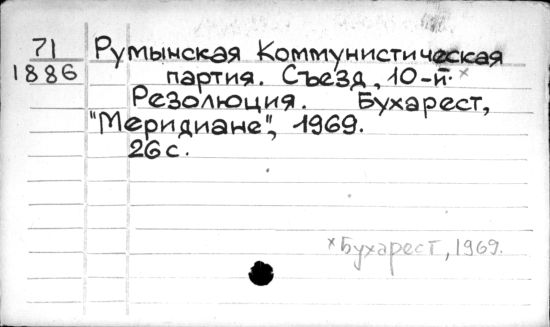 71
1886
Румынская Коммунистическая
партия. Съезд, 10-й.×
Резолюция. Бухарест,
"Меридиане", 1969.
26 с.
×Бухарест, 1969.